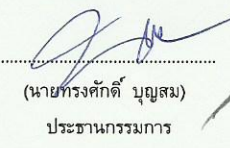 (นายทรงศักดิ์ บุญสม)
ประธานกรรมการ